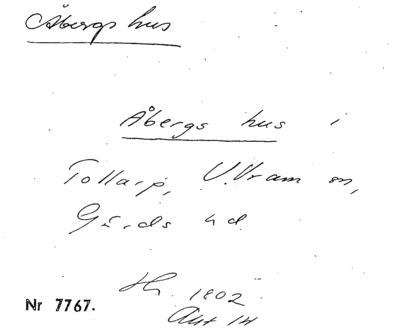 Åbergs hus
Åbergs hus i
Tollarp, V. Vram sn,
Gärds hd.
Hr. 1802
Akt 14
Nr 7767.